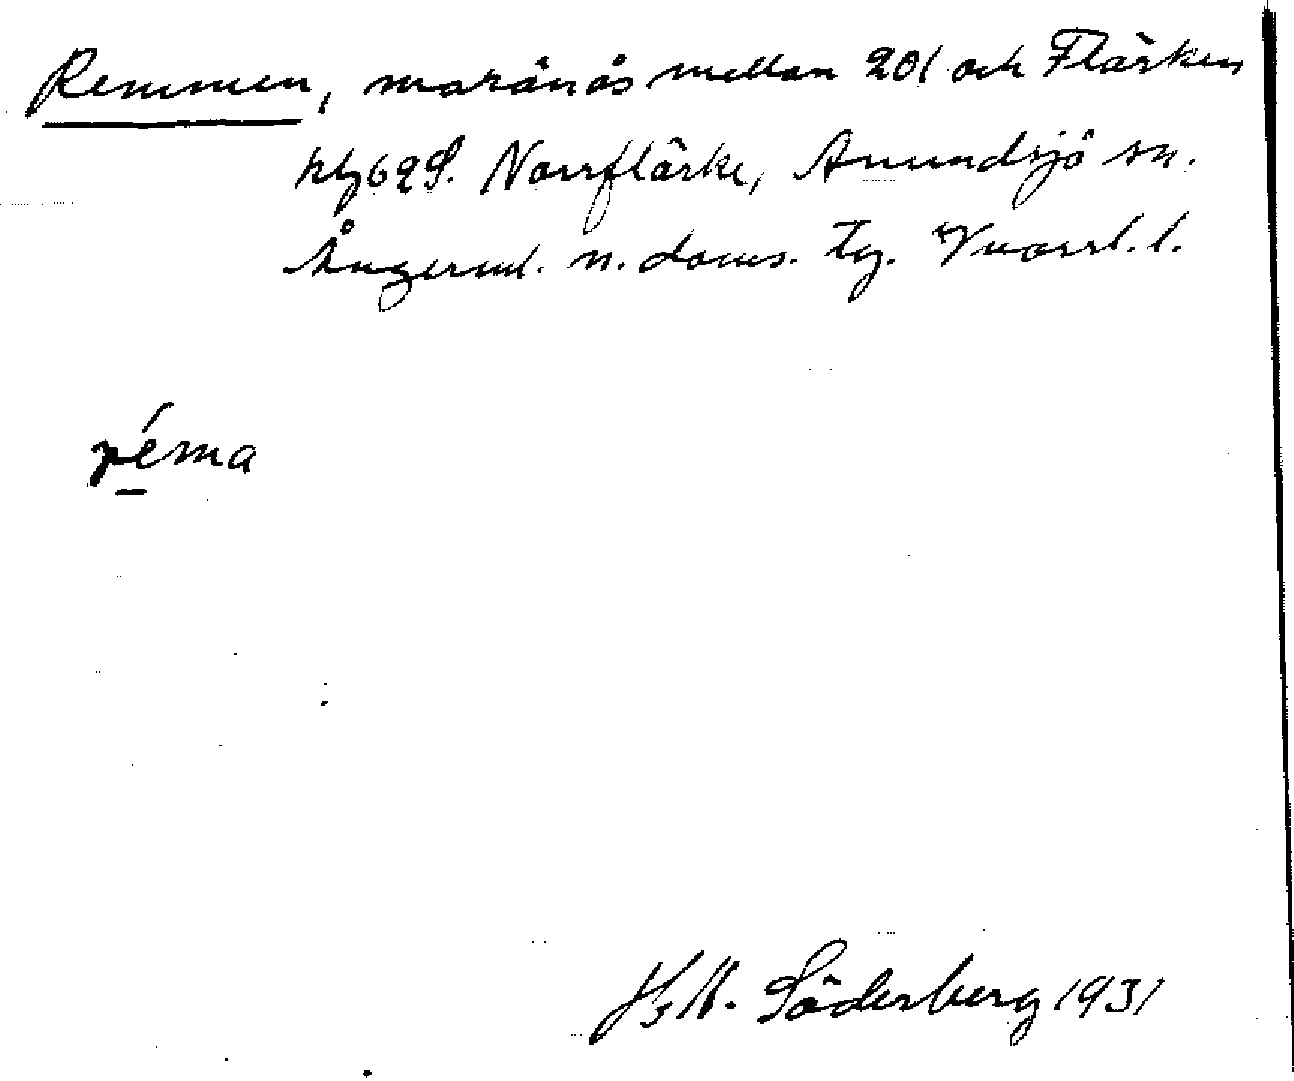 Remmen, moränås mellan 201 och Flärken
hfg 629. Norrflärke, Anundsjö sn.
Ångerml. n. doms. tg. Vnorrl. l.
réma
H. M. Söderberg 1931